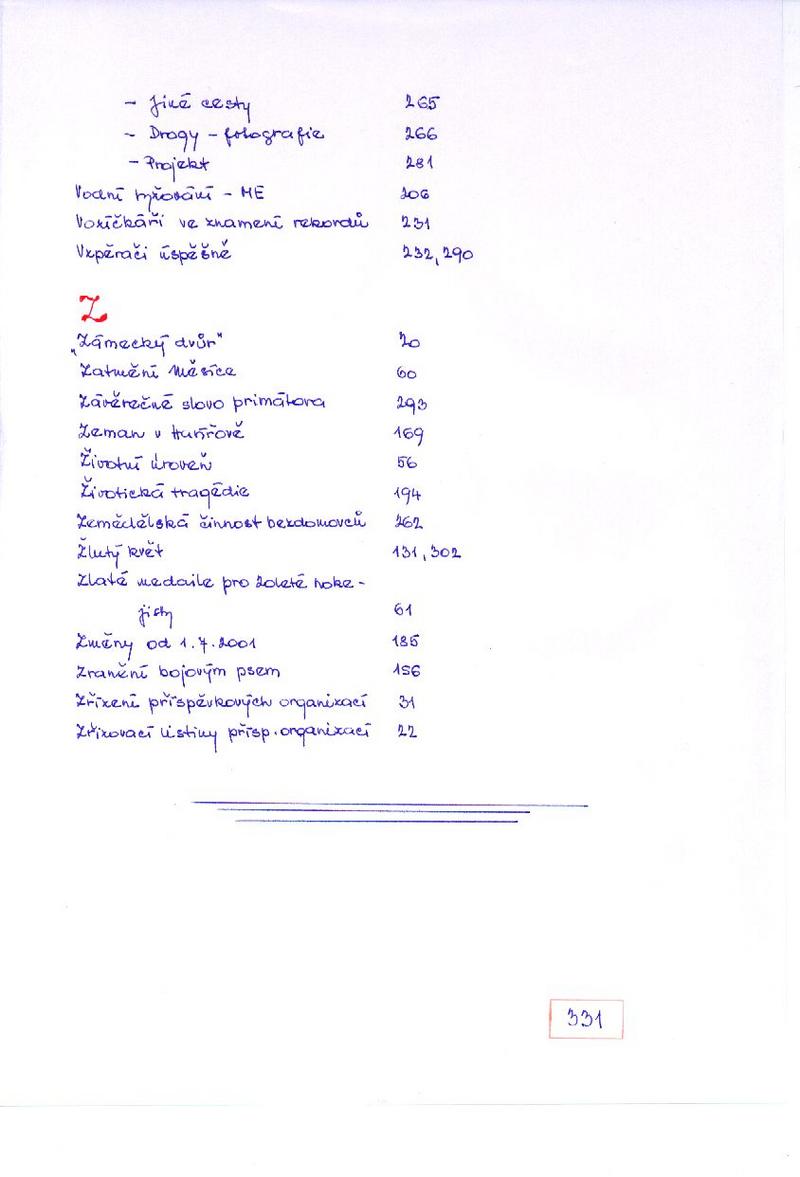 - Jiné cesty 265
- Drogy - fotografie 266
- Projekt 281
Vodní lyžování - ME 206
Vozíčkáři ve znamení rekordů 231
Vzpěrači úspěšně 232, 290
Z
„Zámecký dvůr" 20
Zatmění Měsíce 60
Závěrečné slovo primátora 293
Zeman v Havířově 169
Životní úroveň 56
Životická tragédie 194
Zemědělská činnost bezdomovců 262
Žlutý květ 131, 302
Zlaté medaile pro 20leté hoke-
jisty 61
Změny od 1.7.2001 185
Zranění bojovým psem 156
Zřízení příspěvkových organizací 31
Zřizovací listiny přísp. organizací 22
331